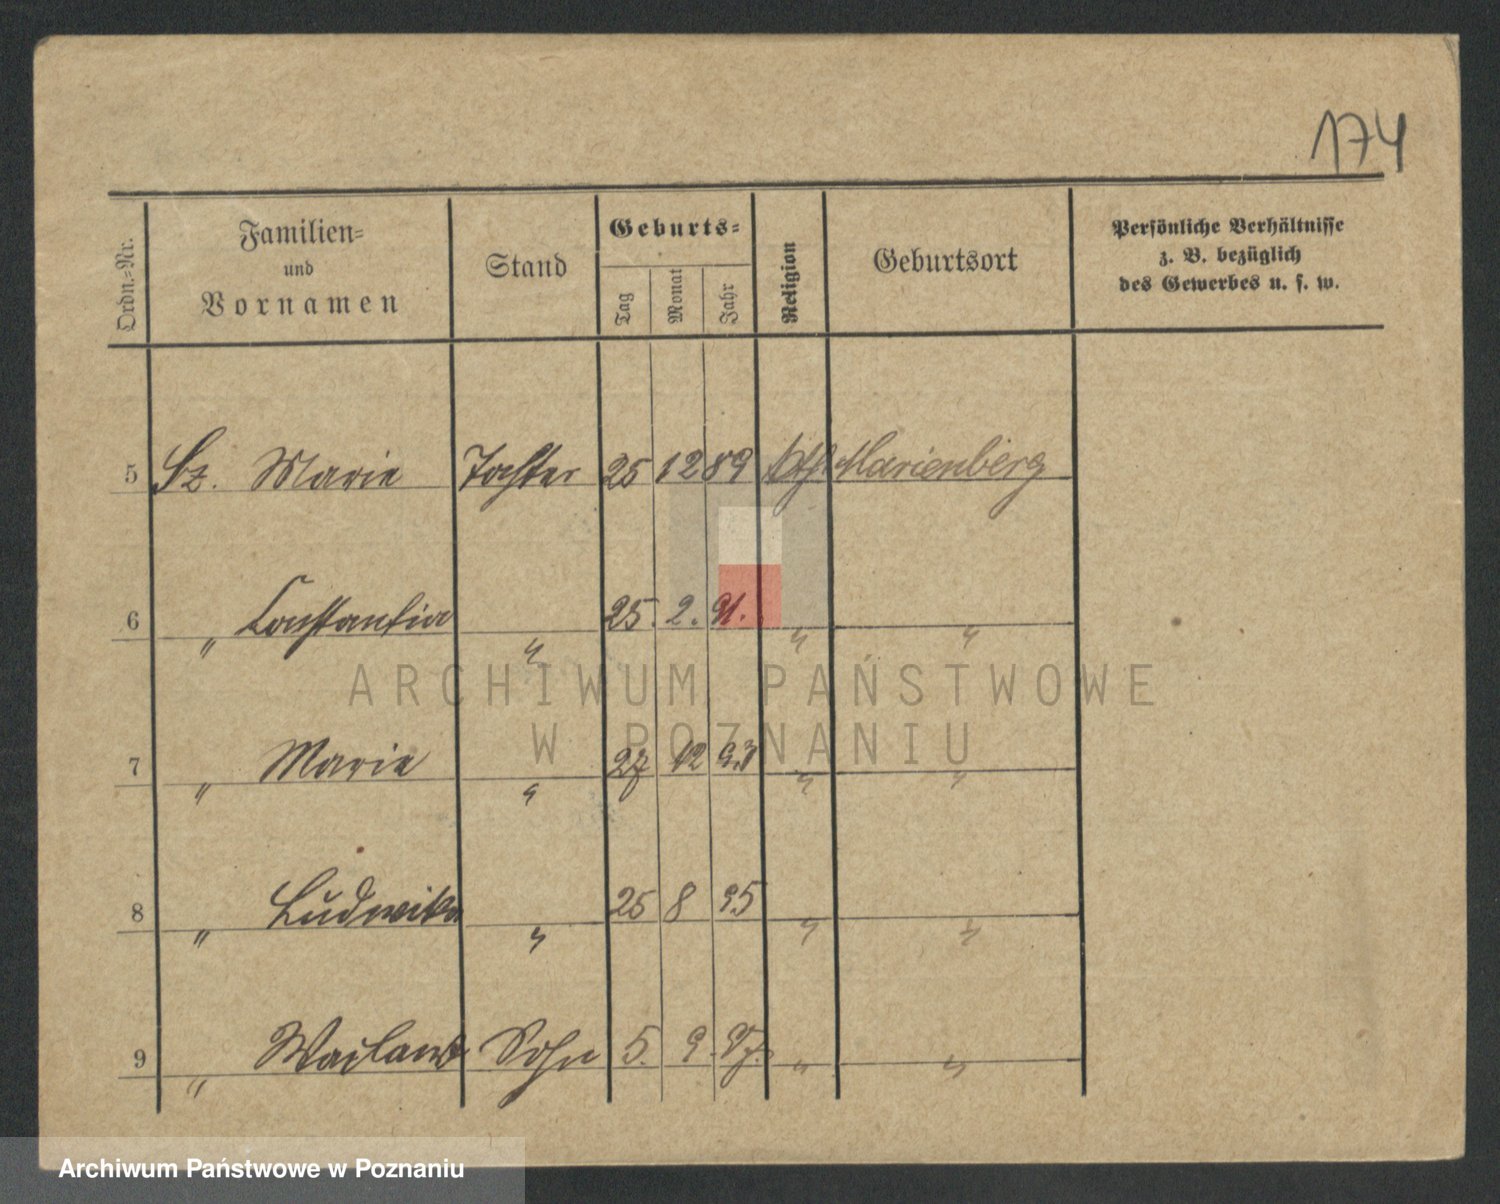 174
Ordn.-Nr.
Familien-
und
Vornamen
Stand
Geburts-
Tag
Monat
Jahr
Religion
Geburtsort
Persönliche Verhältnisse
z. B. bezüglich
des Gewerbes u. s. w.
5 Sz. Marie Tochter 25 12 89 kth. Marienberg
6 " Constantia " 25. 2. 91. " "
7 " Marie " 27 12 93 " "
8 " Ludwika " 25 8 95 " "
9 " Sohn 5. 9. 97. " "
ARCHIWUM PAŃSTWOWE
W POZNANIU
Archiwum Państwowe w Poznaniu